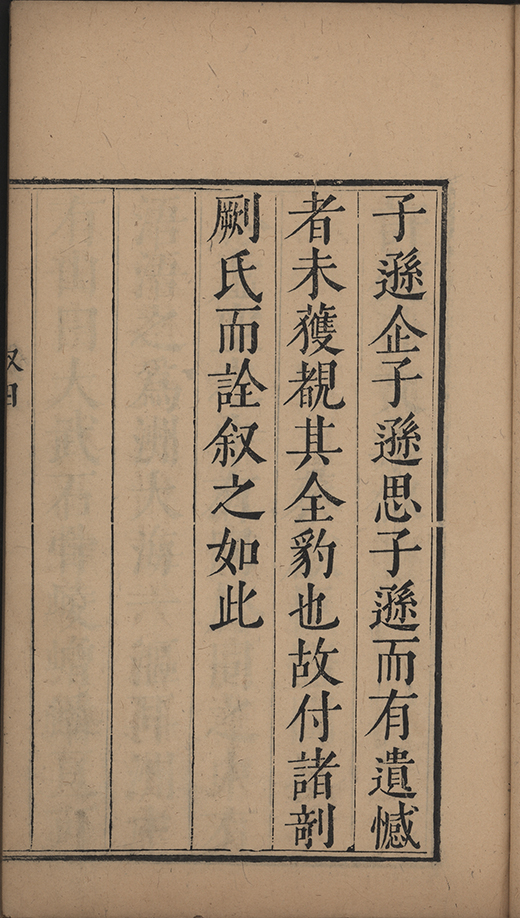 子遜企子遜思子遜而有遺憾
者未獲覩其全豹也故付諸剞
劂氏而詮叙之如此